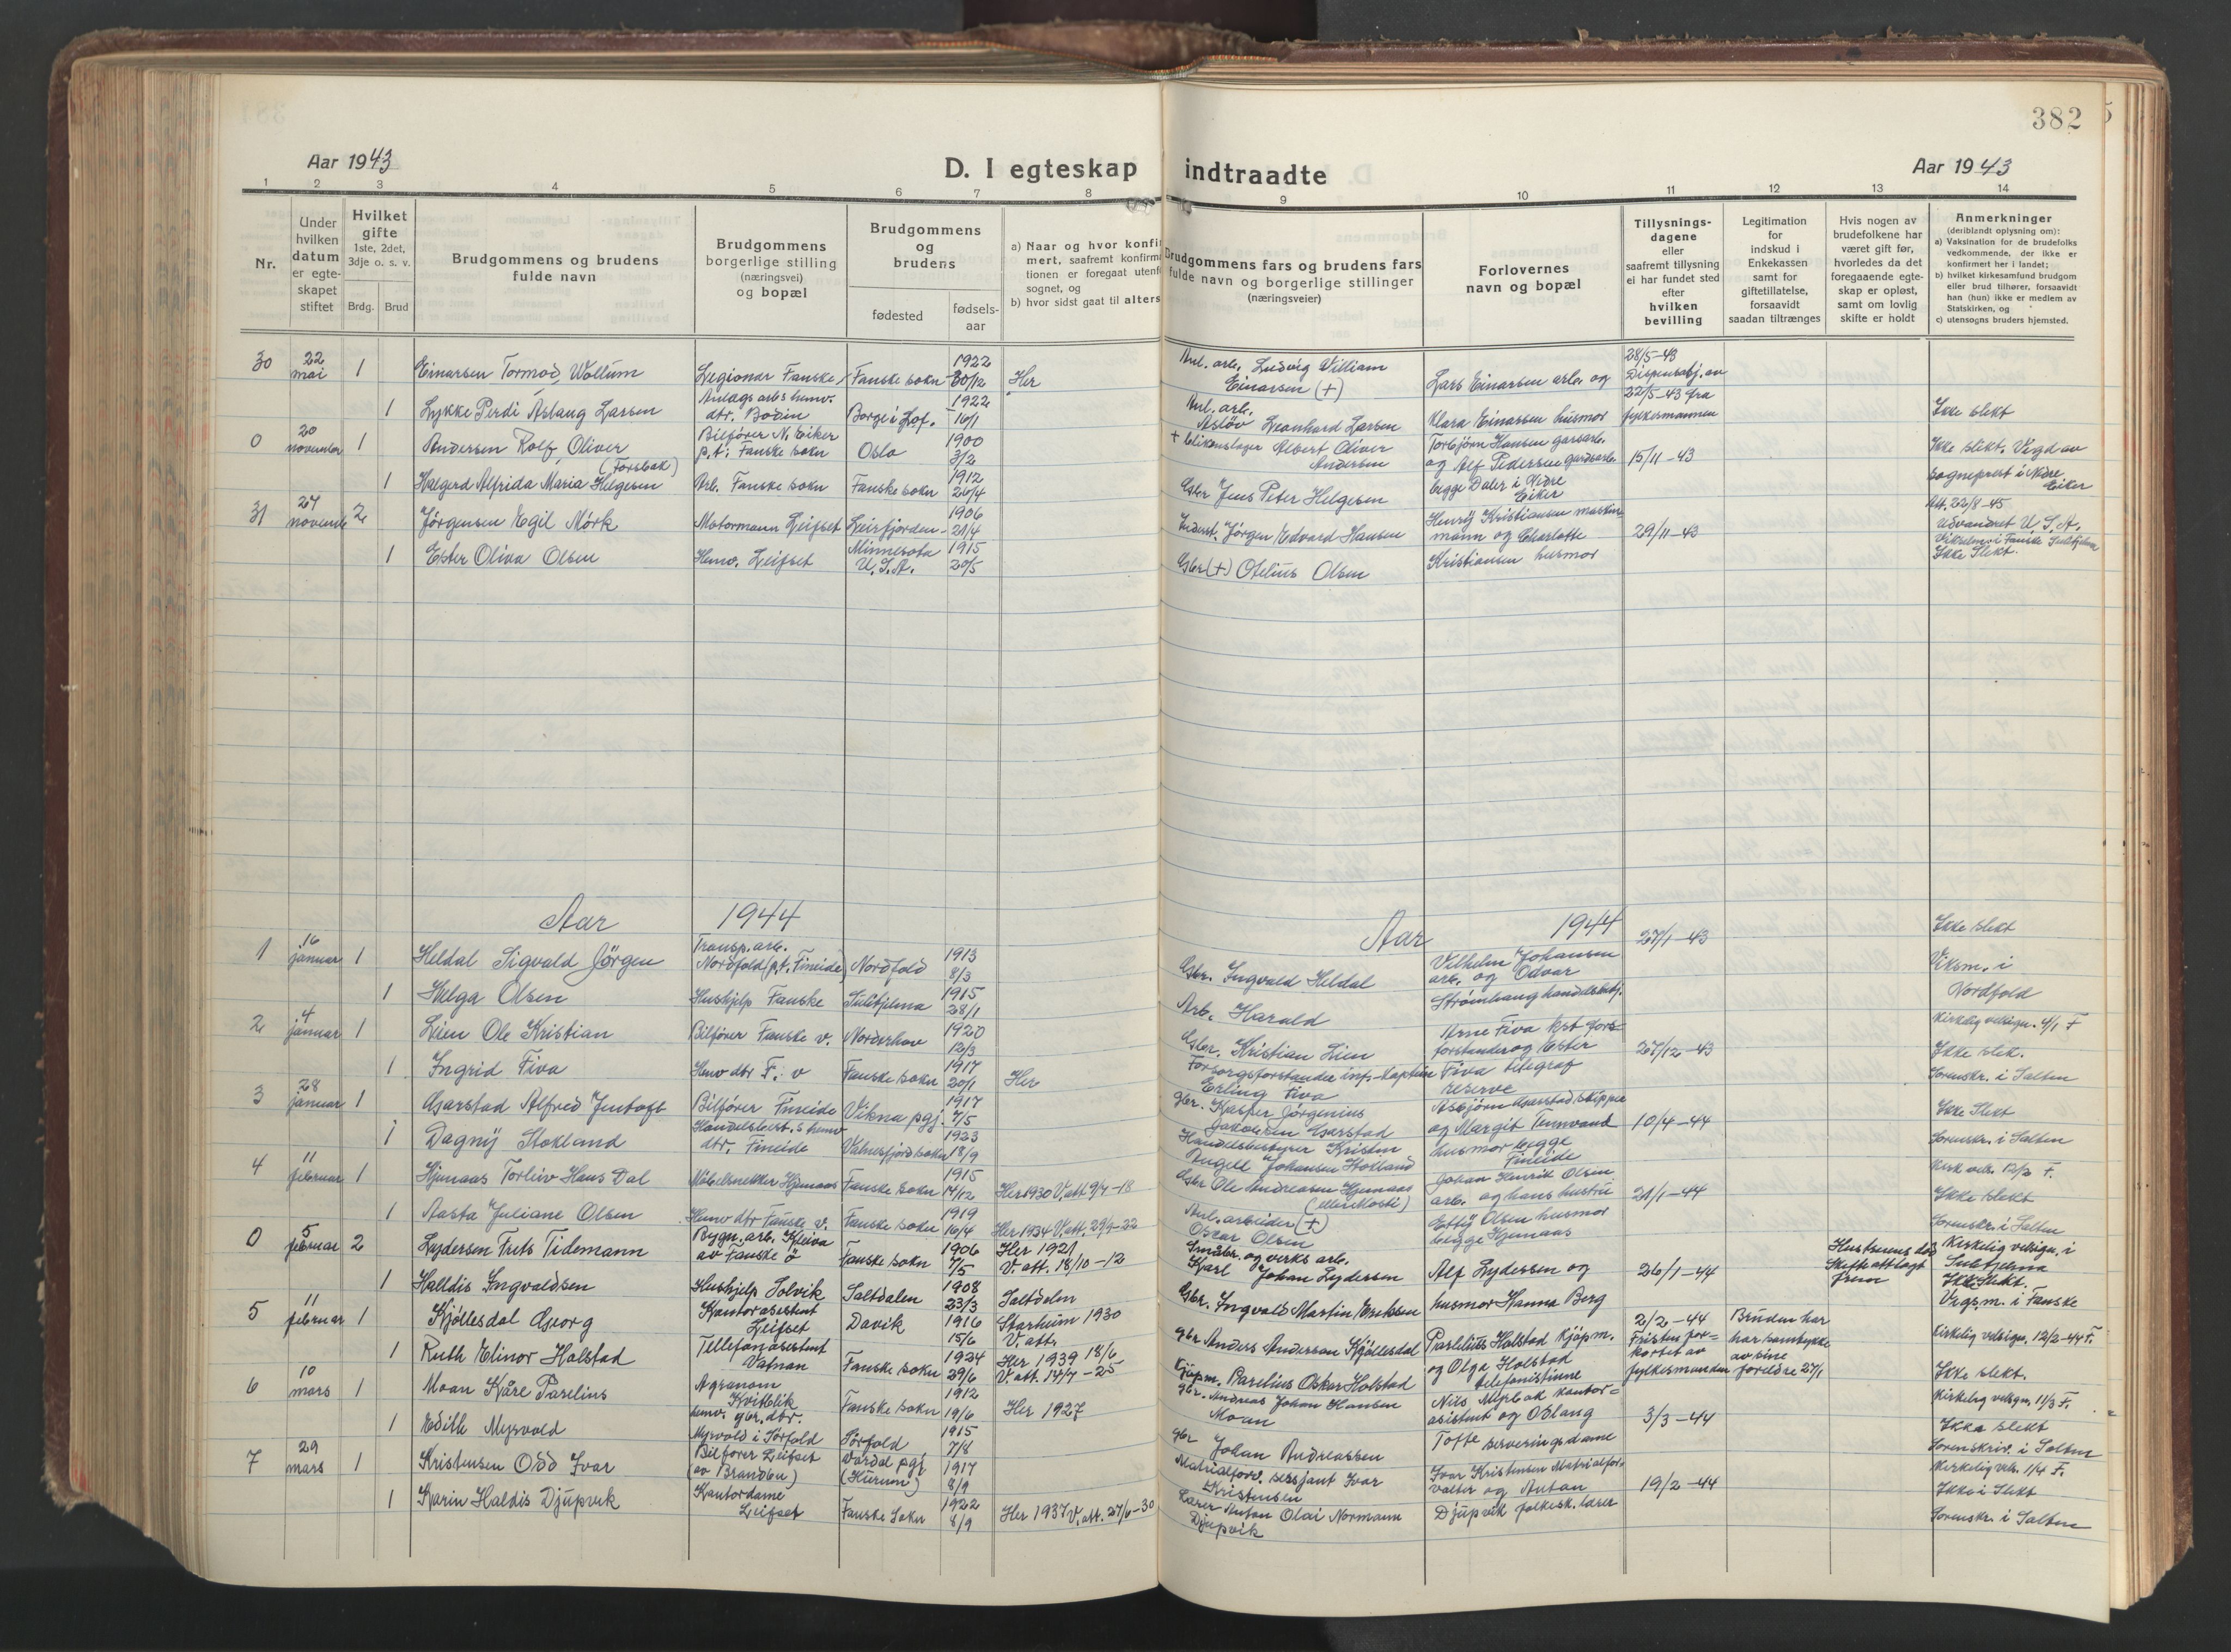 382
Aar 1943
D. I egteskap indtraadte
Aar 1943
1 2 3 4 5 6 7 8 9 10 11 12 13 14
Nr.
Under hvilken datum er egteskapet stiftet
Hvilket gifte
1ste, 2det, 3dje o. s. v.
Brdg. Brud
Brudgommens og brudens fulde navn
Brudgommens borgerlige stilling (næringsvei) og bopæl
Brudgommens og brudens
fødested
fødsels-aar
a) Naar og hvor konfir
mert, saafremt konfirma
tionen er foregaat utenfo
sognet, og
b) hvor sidst gaat til alters
Brudgommens fars og brudens fars
fulde navn og borgerlige stillinger
(næringsveier)
Forlovernes
navn og bopæl
Tillysnings-
dagene
eller
saafremt tillysning
ei har fundet sted
efter
hvilken
bevilling
Legitimation
for
indskud i
Enkekassen
samt for
giftetillatelse,
forsaavidt
saadan tiltrænges
Hvis nogen av
brudefolkene har
været gift før,
hvorledes da det
foregaaende egte-
skap er opløst,
samt om lovlig
skifte er holdt
Anmerkninger
(deriblandt oplysning om):
a) Vaksination for de brudefolks
vedkommende, der ikke er
konfirmert her i landet;
b) hvilket kirkesamfund brudgom
eller brud tilhører, forsaavidt
han (hun) ikke er medlem av
Statskirken, og
c) utensogns bruders hjemsted.
30 22 mai 1 Einarsen Tormod Wollum Legionær Fauske Fauske sokn 1922 30/12 Her Anl. arb. Ludvig Villiam Einarsen (+) Lars Einarsen arb. og 28/5-43 Dispensasj. av
1 Lykke Perdi Aslaug Larsen Anlegs arb.s hemv. dtr. Bodin Borge i Lof. 1922 16/1 Anl. arb. Leonhard Larsen Klara Einarsen husmor 22/5-43 fra fylkesmannen Ikke slekt
0 20 november 1 Andersen Rolf Oliver Bilfører N. Eiker p.t. Fauske sokn Oslo 1900 3/2 + blikenslager Albert Oliver Andersen Torbjörn Hansen garsarb. 15/11-43 Ikke slekt. Vigd av
1 Halgerd Alfrida Maria Helgesen (Forsbak) Arb. Fauske sokn Fauske sokn 1912 26/4 Gbr Jens Peter Helgesen og Alf Pedersen gardsarb. begge Daler i Nedre Eiker sogneprest i Nedre Eiker
31 27 novemb 2 Jørgensen Egil Mörk Motormann Leifset Leirfjorden 1906 21/4 Jörgen Edvard Hansen Henrij Kristiansen maskin- mann og Charlotte 29/11-43 Att. 22/8-45 Udvandret U.S.A.
1 Ester Oliva Olsen Hemv. Leifset Minnesota U.S.A. 1915 20/5 Gbr (+) Otelius Olsen Kristiansen husmor Ikke Slekt.
Aar 1944
Aar 1944
1 16 januar 1 Heldal Sigvald Jörgen Transp. arb. Nordfold (p.t. Fineide) Nordfold 1913 8/3 Gbr. Ingvald Heldal Vilhelm Johansen arb. og Odvar 27/1-43 Ikke slekt
1 Helga Olsen Hushjelp Fauske Sulitjelma 1915 28/1 Arb. Harald Strömhaug handelsbetj. Viksm. i Nordfold
2 4 januar 1 Lien Ole Kristian Bilfører Fauske v. Norderhov 1920 12/3 Gbr. Kristian Lien Arne Fiva 27/12-43 Kirkelig velsign. 4/1 F
1 Ingrid Fiva Hemv dtr F. v Fauske sokn 1917 20/1 Her Forsorgsforstander inf.-kaptein Erling Fiva forstander og Ester Fiva telegraf reserve Ikke slek. Sorenskr. i Salten
3 28 januar 1 Asarstad Alfred Jentoft Bilfører Fineide Vikna pgj. 1917 7/5 gbr. Kasper Jörgenius Jakobsen Asarstad Asbjörn Asarstad skipper og Margit Tennvand 10/4-44 Ikke Slekt
1 Dagnij Stokland Handelsbest.s hemv dtr. Fineide Valnesfjord sokn 1923 18/9 Handelsbestyrer Kristen Angell Johansen Stokland husmor begge Fineide Sorenskr. i Salten
4 11 februar 1 Hjemaas Torleiv Hans Dal Möbelsnekker Hjemaas Fauske sokn 1915 14/12 Her 1930 V. att 9/7-18 Gbr Ole Andreasen Hjemaas Johan Henrik Olsen arb. og hans hustru 21/1-44 Kirk vels. 12/2 F.
1 Aasta Juliane Olsen Hemv dtr Fauske v. Fauske sokn 1919 16/4 Her 1934 V. att. 29/9-22 Anl. arbeider (+) Oscar Olsen Ettij Olsen husmor begge Hjemaas Ikke slekt Sorenskr. i Salten
0 5 februar 2 Lydersen Fruts Tidemann Bygn. arb. Kleiva av Fauske ö Fauske sokn 1906 7/5 Her 1921 V. att. 18/10-12 Småbr. og verks arb. Karl Johan Lydersen Alf Lydersen og 26/1-44 Hustruens död Skifteatt lagt frem Kirkelig velsign. i Sulitjelma
1 Halldis Ingvaldsen Hushjelp Solvik Saltdalen 1908 23/3 Saltdalen Gbr. Ingvald Martin Eriksen husmor Hanna Berg Ikke Slekt. Vigsm. i Fauske
5 11 februar 1 Kjöllesdal Georg Kontorasistent Leifset Davik 1916 15/6 Starheim 1930 V. att. gbr Anders Anderson Kjöllesdal Parelius Holstad Kjöpm. 2/2-44 Fristen for- kortet av Bruden har har samtykke av sine Kirkelig velsign. 12/2-44 F.
1 Ruth Elinor Holstad Tellefonasistent Vatnan Fauske sokn 1924 29/6 Her 1939 18/6 V att. 14/7-25 Kjöpm. Parelius Oskar Holstad og Olga Holstad telefonistinne fylkesmannen foreldre 27/1 Ikke slekt.
6 10 mars 1 Moan Kåre Parelius Agronom Kvitblik Fauske sokn 1912 19/6 Her 1927 gbr. Andreas Johan Hansen Moan Nils Myrbak kontor- asistent og Oslaug 3/3-44 Kirkelig velsign. 11/3 F.
1 Edith Myrvold hemv. gbr. dtr. Myrvold i Sörfold Sörfold 1915 7/8 gbr Johan Andreassen Tofte serveringsdame Ikke slekt Sorenskriv. i Salten
7 29 mars 1 Kristensen Odd Ivar Bilfører Leifset (av Brandbu) Vardal pgj 1917 8/9 Matrialforv. sersjant Ivar Kristensen Ivar Kristensen Matrialfor- valter og Anton 19/2-44 Kirkelig vels. 1/4 F.
1 Karin Haldis Djupvik Kontordame Leifset Fauske Sokn 1922 8/9 Her 1937 V. att. 27/6-30 Lærer Anton Olai Normann Djupvik Djupvik folkesk. lærer Ikke i Slekt Sorenskr. i Salten